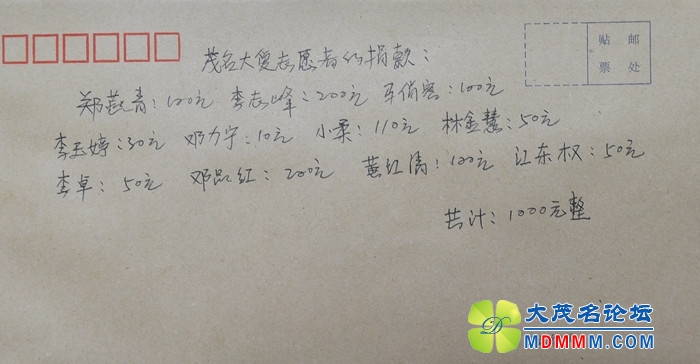 贴 邮
票 处
茂名大爱志愿者的捐款：
郑燕青：100元 李志峰：200元 车俏容：100元
李玉婷：30元 邓力宁：10元 小柔：110元 林金慧：50元
李卓：50元 邓晶红：200元 黄红清：100元 江东权：50元
共计：1000元整
大茂名论坛
MDMMM.COM